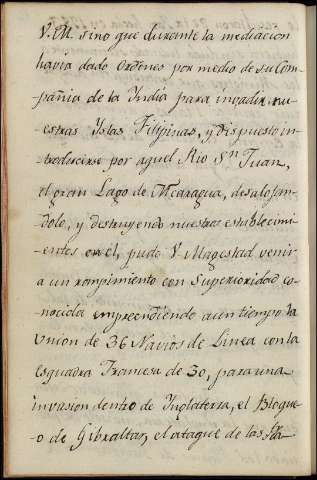 V.M. sino que durante la mediacion
havia dado ordenes por medio de su Com-
pañia de la India para invadir nu-
estras Yslas Filipinas, y dispuesto in-
troducirse por aquel Rio Sn. Juan,
el gran Lago de Nicaragua, desalojan-
dole, y destruyendo nuestros establecimi-
entes en el, pudo V. Magestad venir
a un rompimiento con Superioridad co-
nocida emprendiendo a un tiempo la
Union de 36 Navios de Linea con la
Esquadra Francesa de 30, para una
invasion dentro de Inglaterra, el Bloque-
o de Gibraltar, el ataque de las